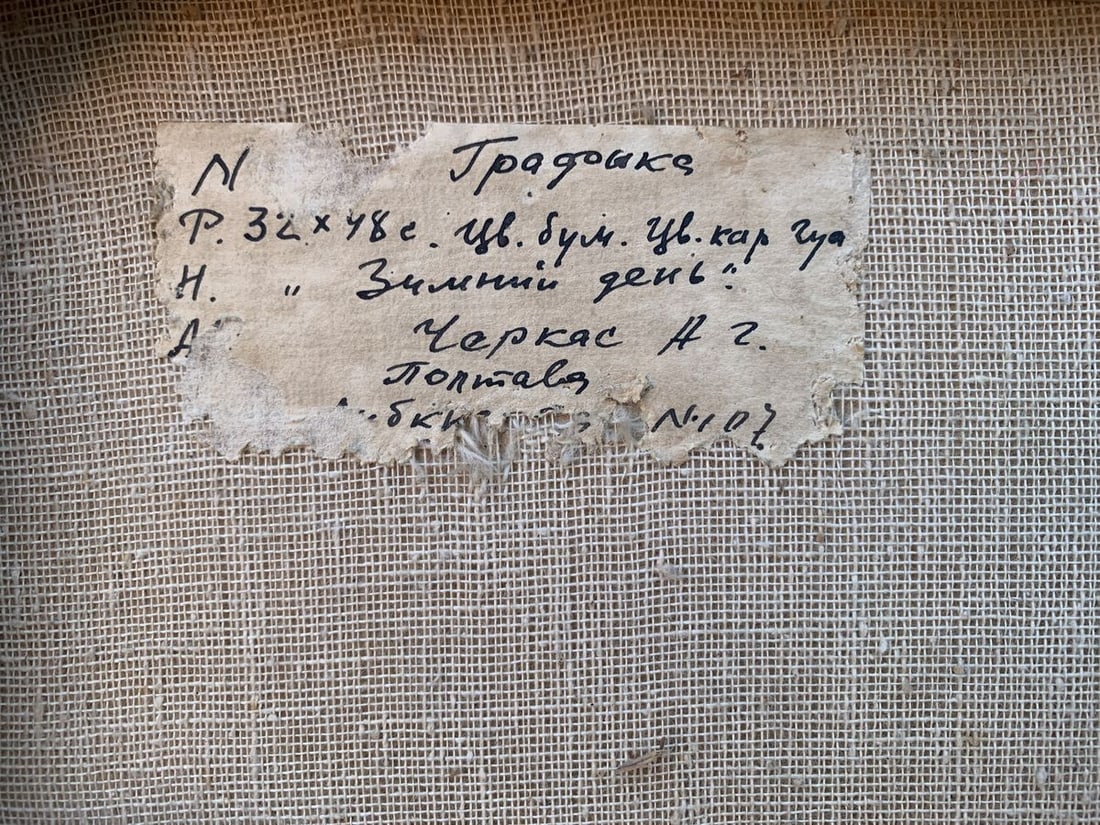 N Графика
Р. 32 × 48 с. Цв. бум. Цв. кар гуа
Н. „ Зимний день"
А Черкас А г.
Полтава
№ 107